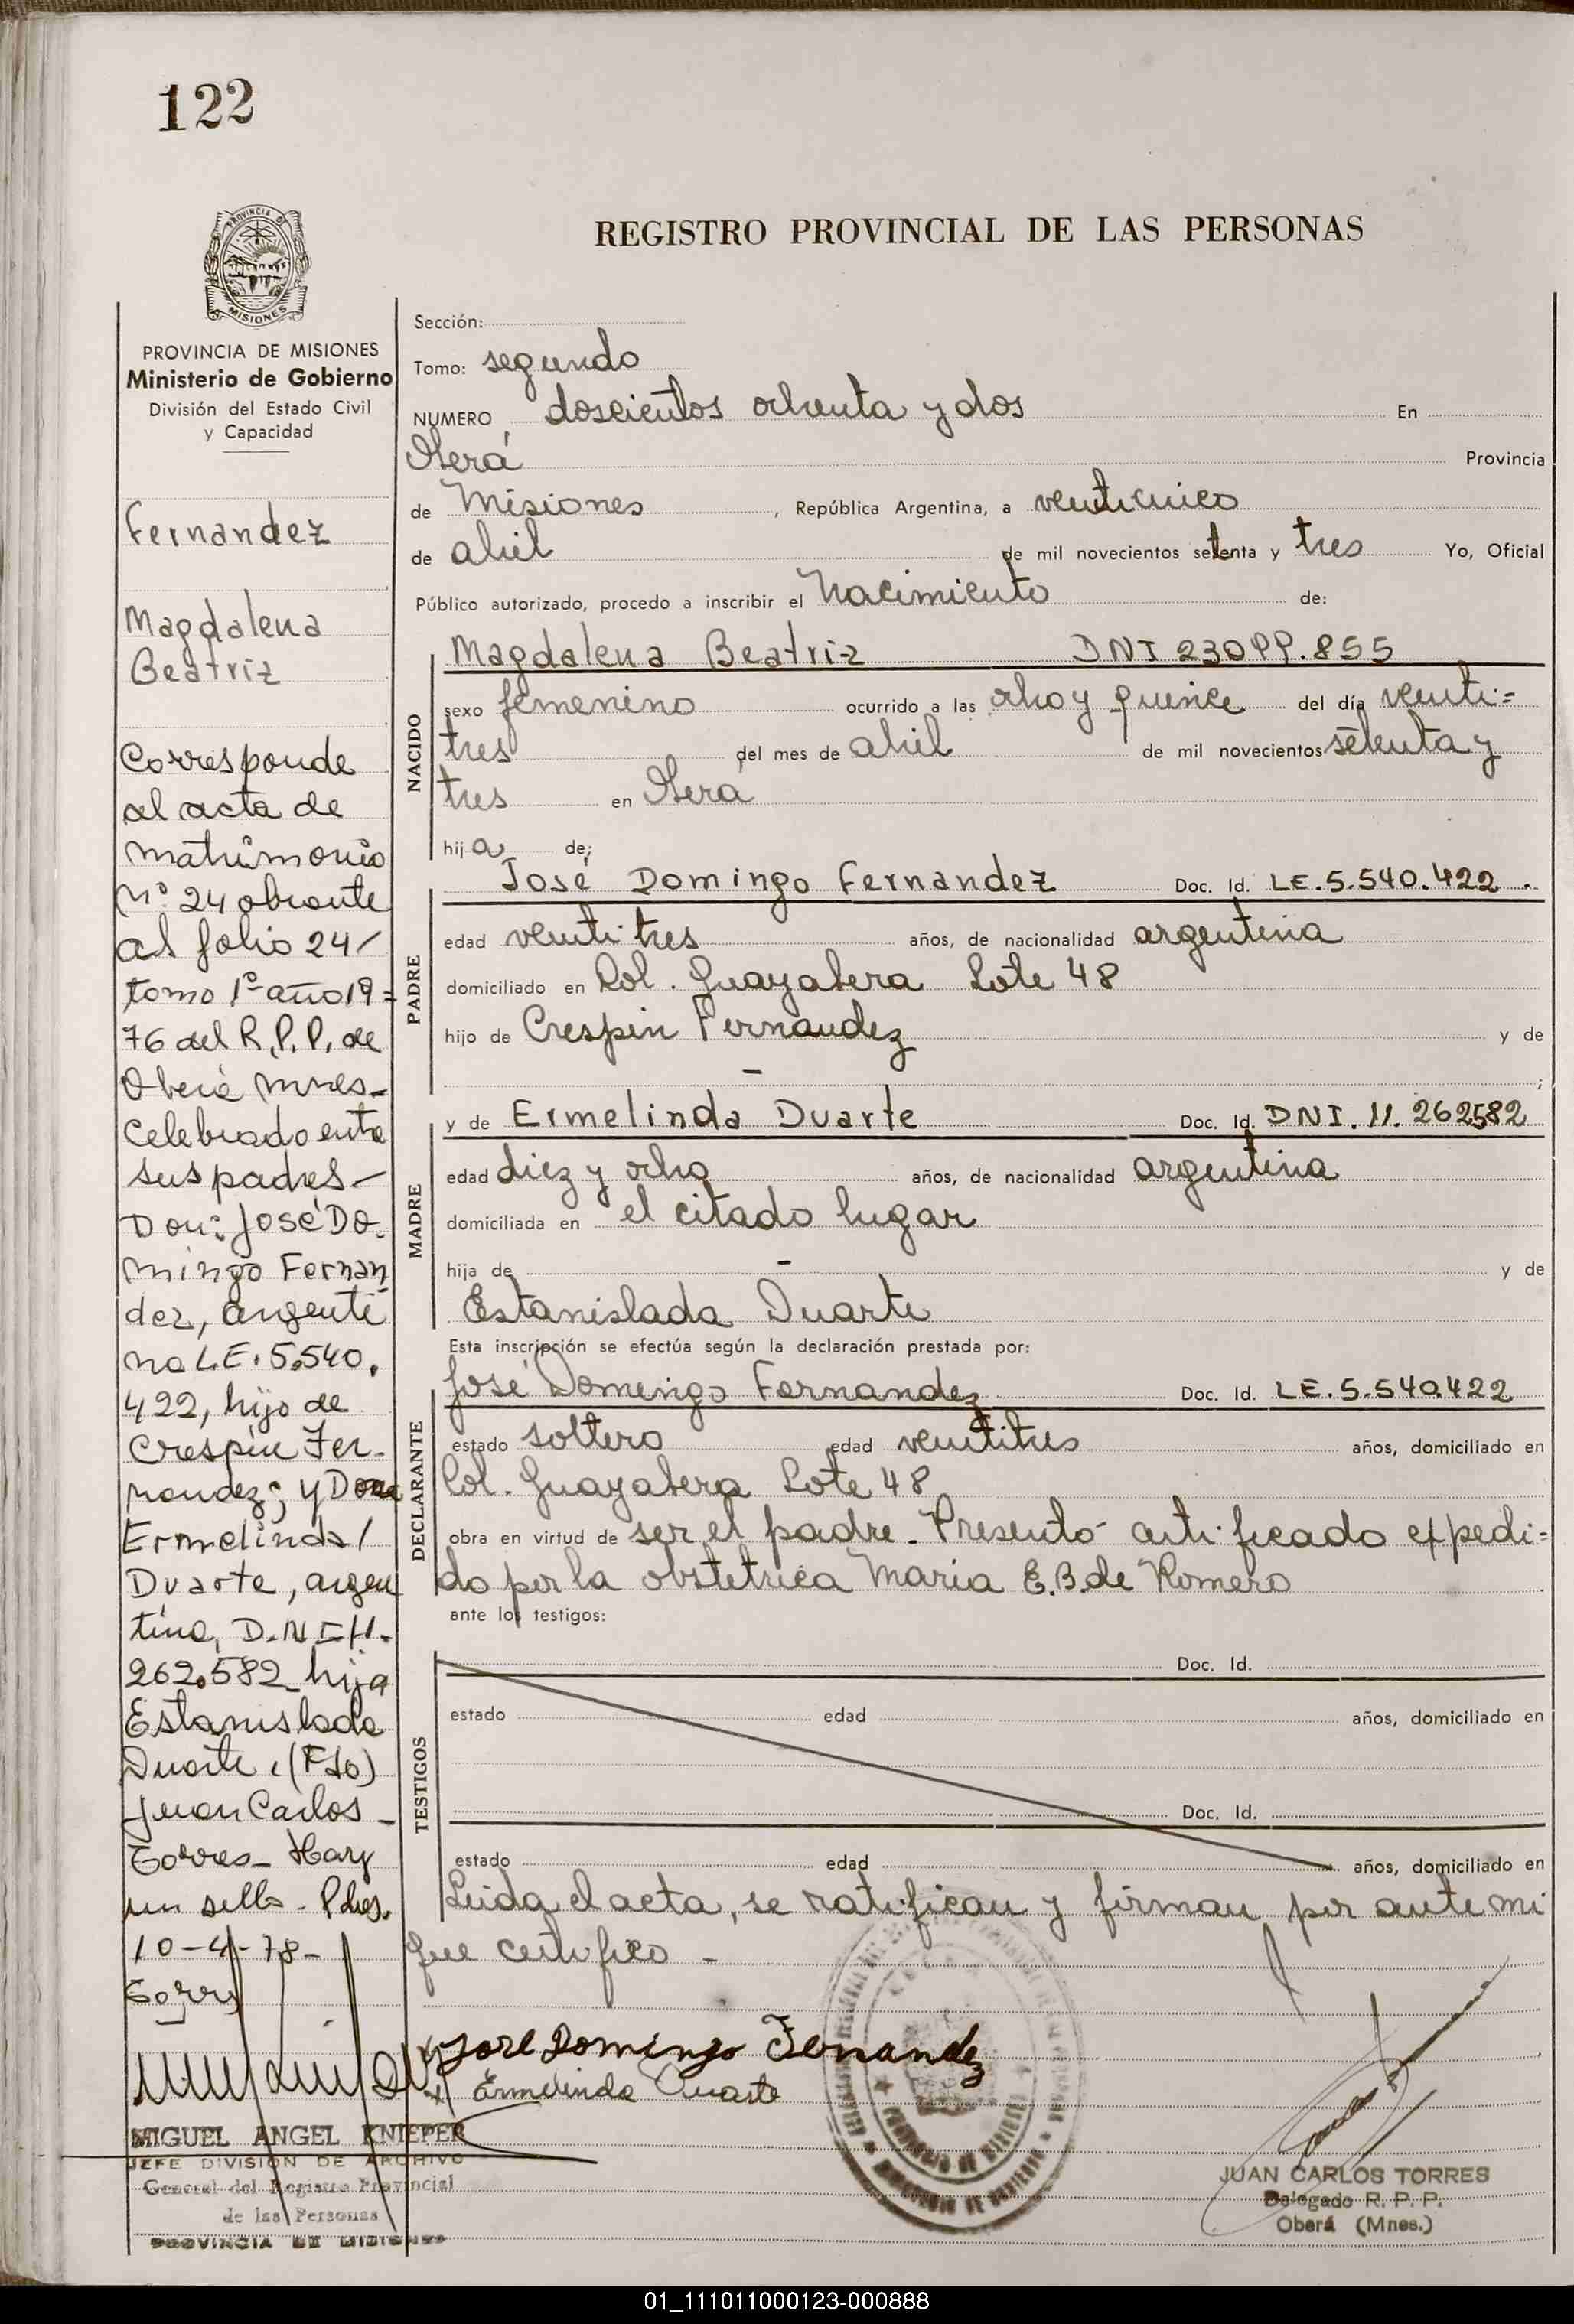 122
PROVINCIA DE
MISIONES
PROVINCIA DE MISIONES
Ministerio de Gobierno
División del Estado Civil
y Capacidad
Fernandez
Magdalena
Beatriz
Corresponde
al acta de
matrimonio
Nº 24 obrante
al folio 24/
tomo 1º año 19=
76 del R.P.P. de
Oberá Mnes-
Celebrado entre
sus padres-
Don: José Do-
mingo Fernan
dez, argenti
no L.E. 5.540.
422, hijo de
Crespin Fer-
nandez; y Doña
Ermelinda /
Duarte, argen
tina, D.N.I 11.
262.582 hija
Estanislada
Duarte. (Fdo)
Juan Carlos-
Torres- Hay
un sello - Pdas.
10-4-78-
REGISTRO PROVINCIAL DE LAS PERSONAS
Sección:
Tomo: segundo
NUMERO doscientos ochenta y dos En
Oberá Provincia
de Misiones, República Argentina, a veinticinco
de abril de mil novecientos setenta y tres Yo, Oficial
Público autorizado, procedo a inscribir el Nacimiento de:
NACIDO
Magdalena Beatriz DNI 23099.855
sexo femenino ocurrido a las ocho y quince del día veinti=
tres del mes de abril de mil novecientos setenta y
tres en Oberá
hija de;
PADRE
José Domingo Fernandez Doc. Id. LE.5.540.422.
edad veintitres años, de nacionalidad argentina
domiciliado en Col. Guayabera Lote 48
hijo de Crespin Fernandez y de
- ;
MADRE
y de Ermelinda Duarte Doc. Id. DNI. 11.262582
edad diez y ocho años, de nacionalidad argentina
domiciliada en el citado lugar
hija de - y de
Estanislada Duarte
Esta inscripción se efectúa según la declaración prestada por:
DECLARANTE
José Domingo Fernandez Doc. Id. LE.5.540.422
estado soltero edad veintitres años, domiciliado en
Col. Guayabera Lote 48
obra en virtud de ser el padre. Presentó certificado expedi=
do por la obstetrica Maria E.B. de Romero
ante los testigos:
TESTIGOS
Doc. Id.
estado edad años, domiciliado en
Doc. Id.
estado edad años, domiciliado en
Leida el acta, se ratifican y firman por ante mi
que certifico -
Jose Domingo Fernandez
Ermelinda Duarte
MIGUEL ANGEL KNIEPER
JEFE DIVISION DE ARCHIVO
General del Registro Provincial
de las Personas
PROVINCIA DE MISIONES
JUAN CARLOS TORRES
Delegado R. P. P.
Oberá (Mnes.)
01_111011000123-000888